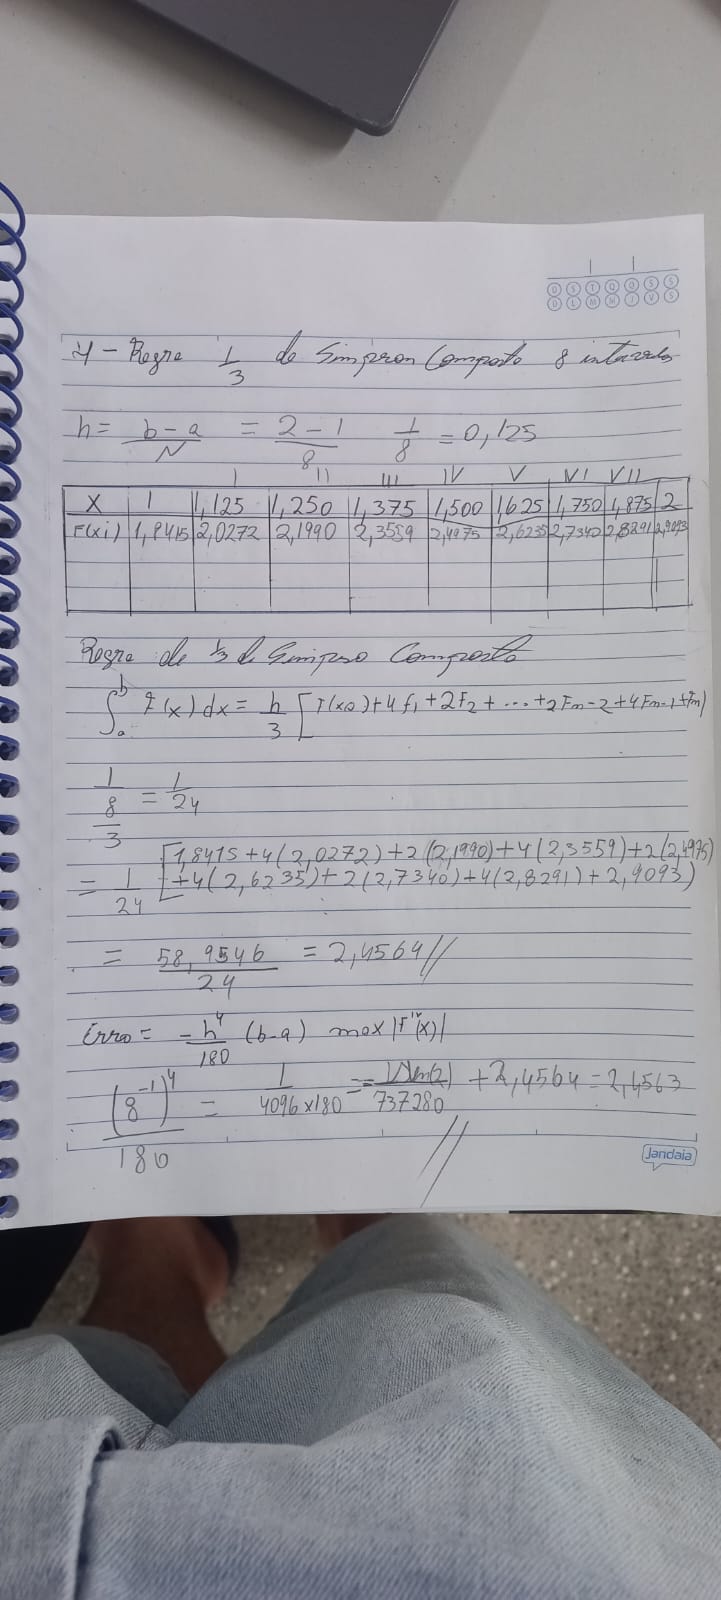 D S T Q Q S S
D L M M J V S
4 - Regra 1/3 de Simpson Composto 8 intervalos
h = b-a/N = 2-1/8 1/8 = 0,125
I II III IV V VI VII
X 1 1,125 1,250 1,375 1,500 1,625 1,750 1,875 2
F(xi) 1,8415 2,0272 2,1990 2,3559 2,4975 2,6235 2,7340 2,8291 2,9093
Regra de 1/3 de Simpso Composto
∫ₐᵇ f(x) dx = h/3 [F(x0) + 4f1 + 2F2 + ... + 2Fm-2 + 4Fm-1 + Fm)
1/8/3 = 1/24
= 1/24 [1,8415 + 4(2,0272) + 2(2,1990) + 4(2,3559) + 2(2,4975)
+4(2,6235) + 2(2,7340) + 4(2,8291) + 2,9093)
= 58,9546/24 = 2,4564//
Erro = -h⁴/180 (b-a) max|F⁗(x)|
(8⁻¹)⁴/180 = 1/4096x180 = /737280 + 2,4564 = 2,4563
//
Jandaia